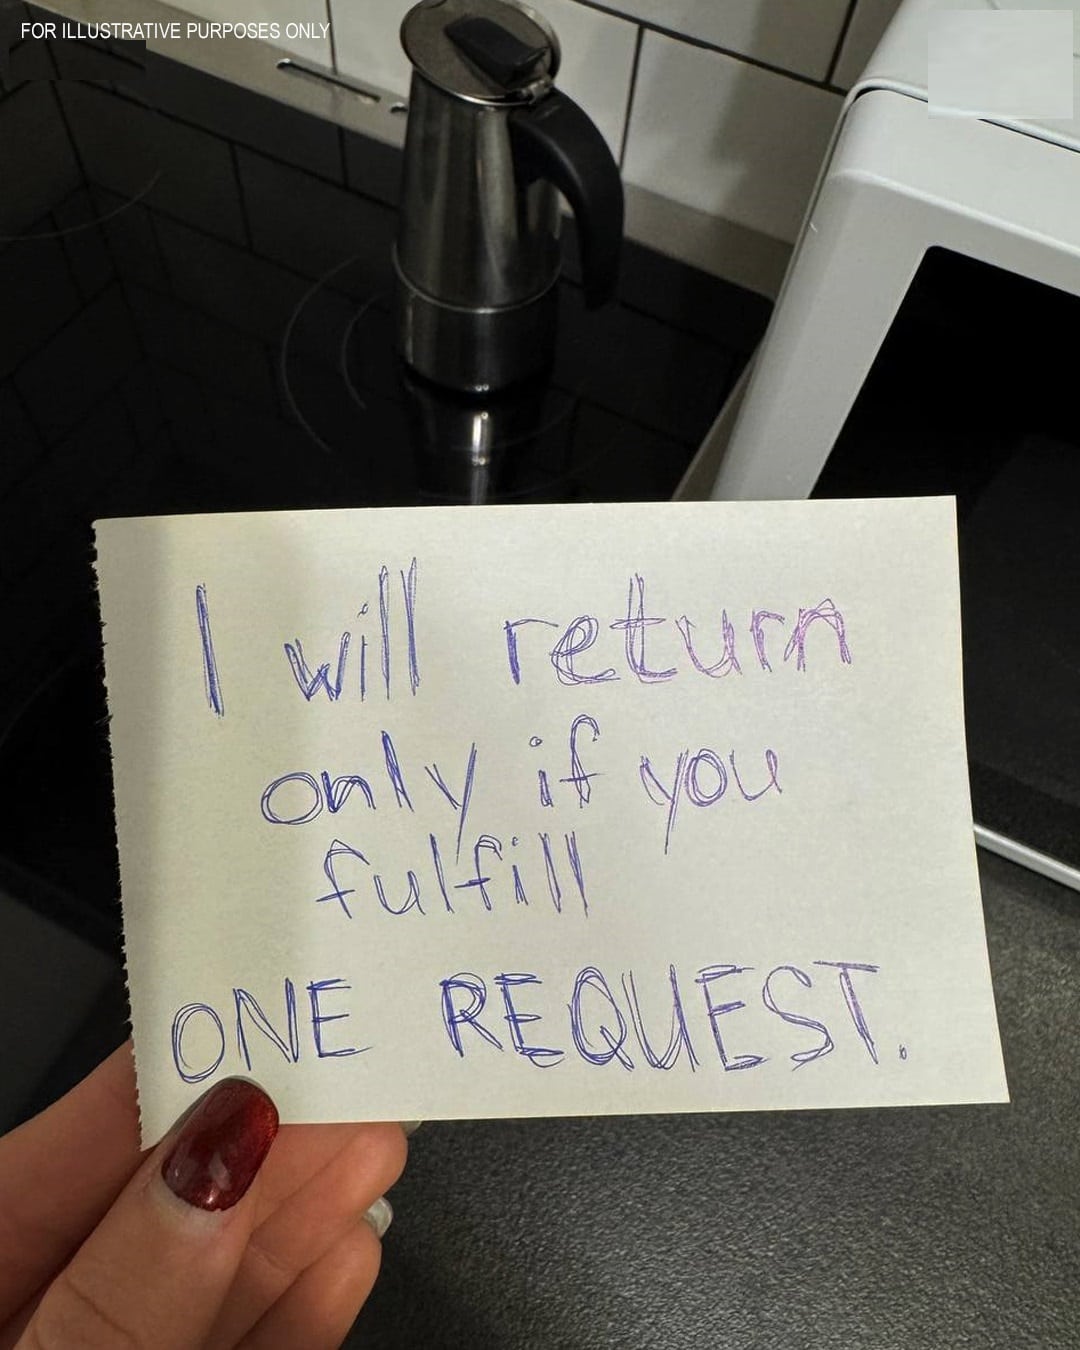 FOR ILLUSTRATIVE PURPOSES ONLY
I will return
only if you
fulfill
ONE REQUEST.